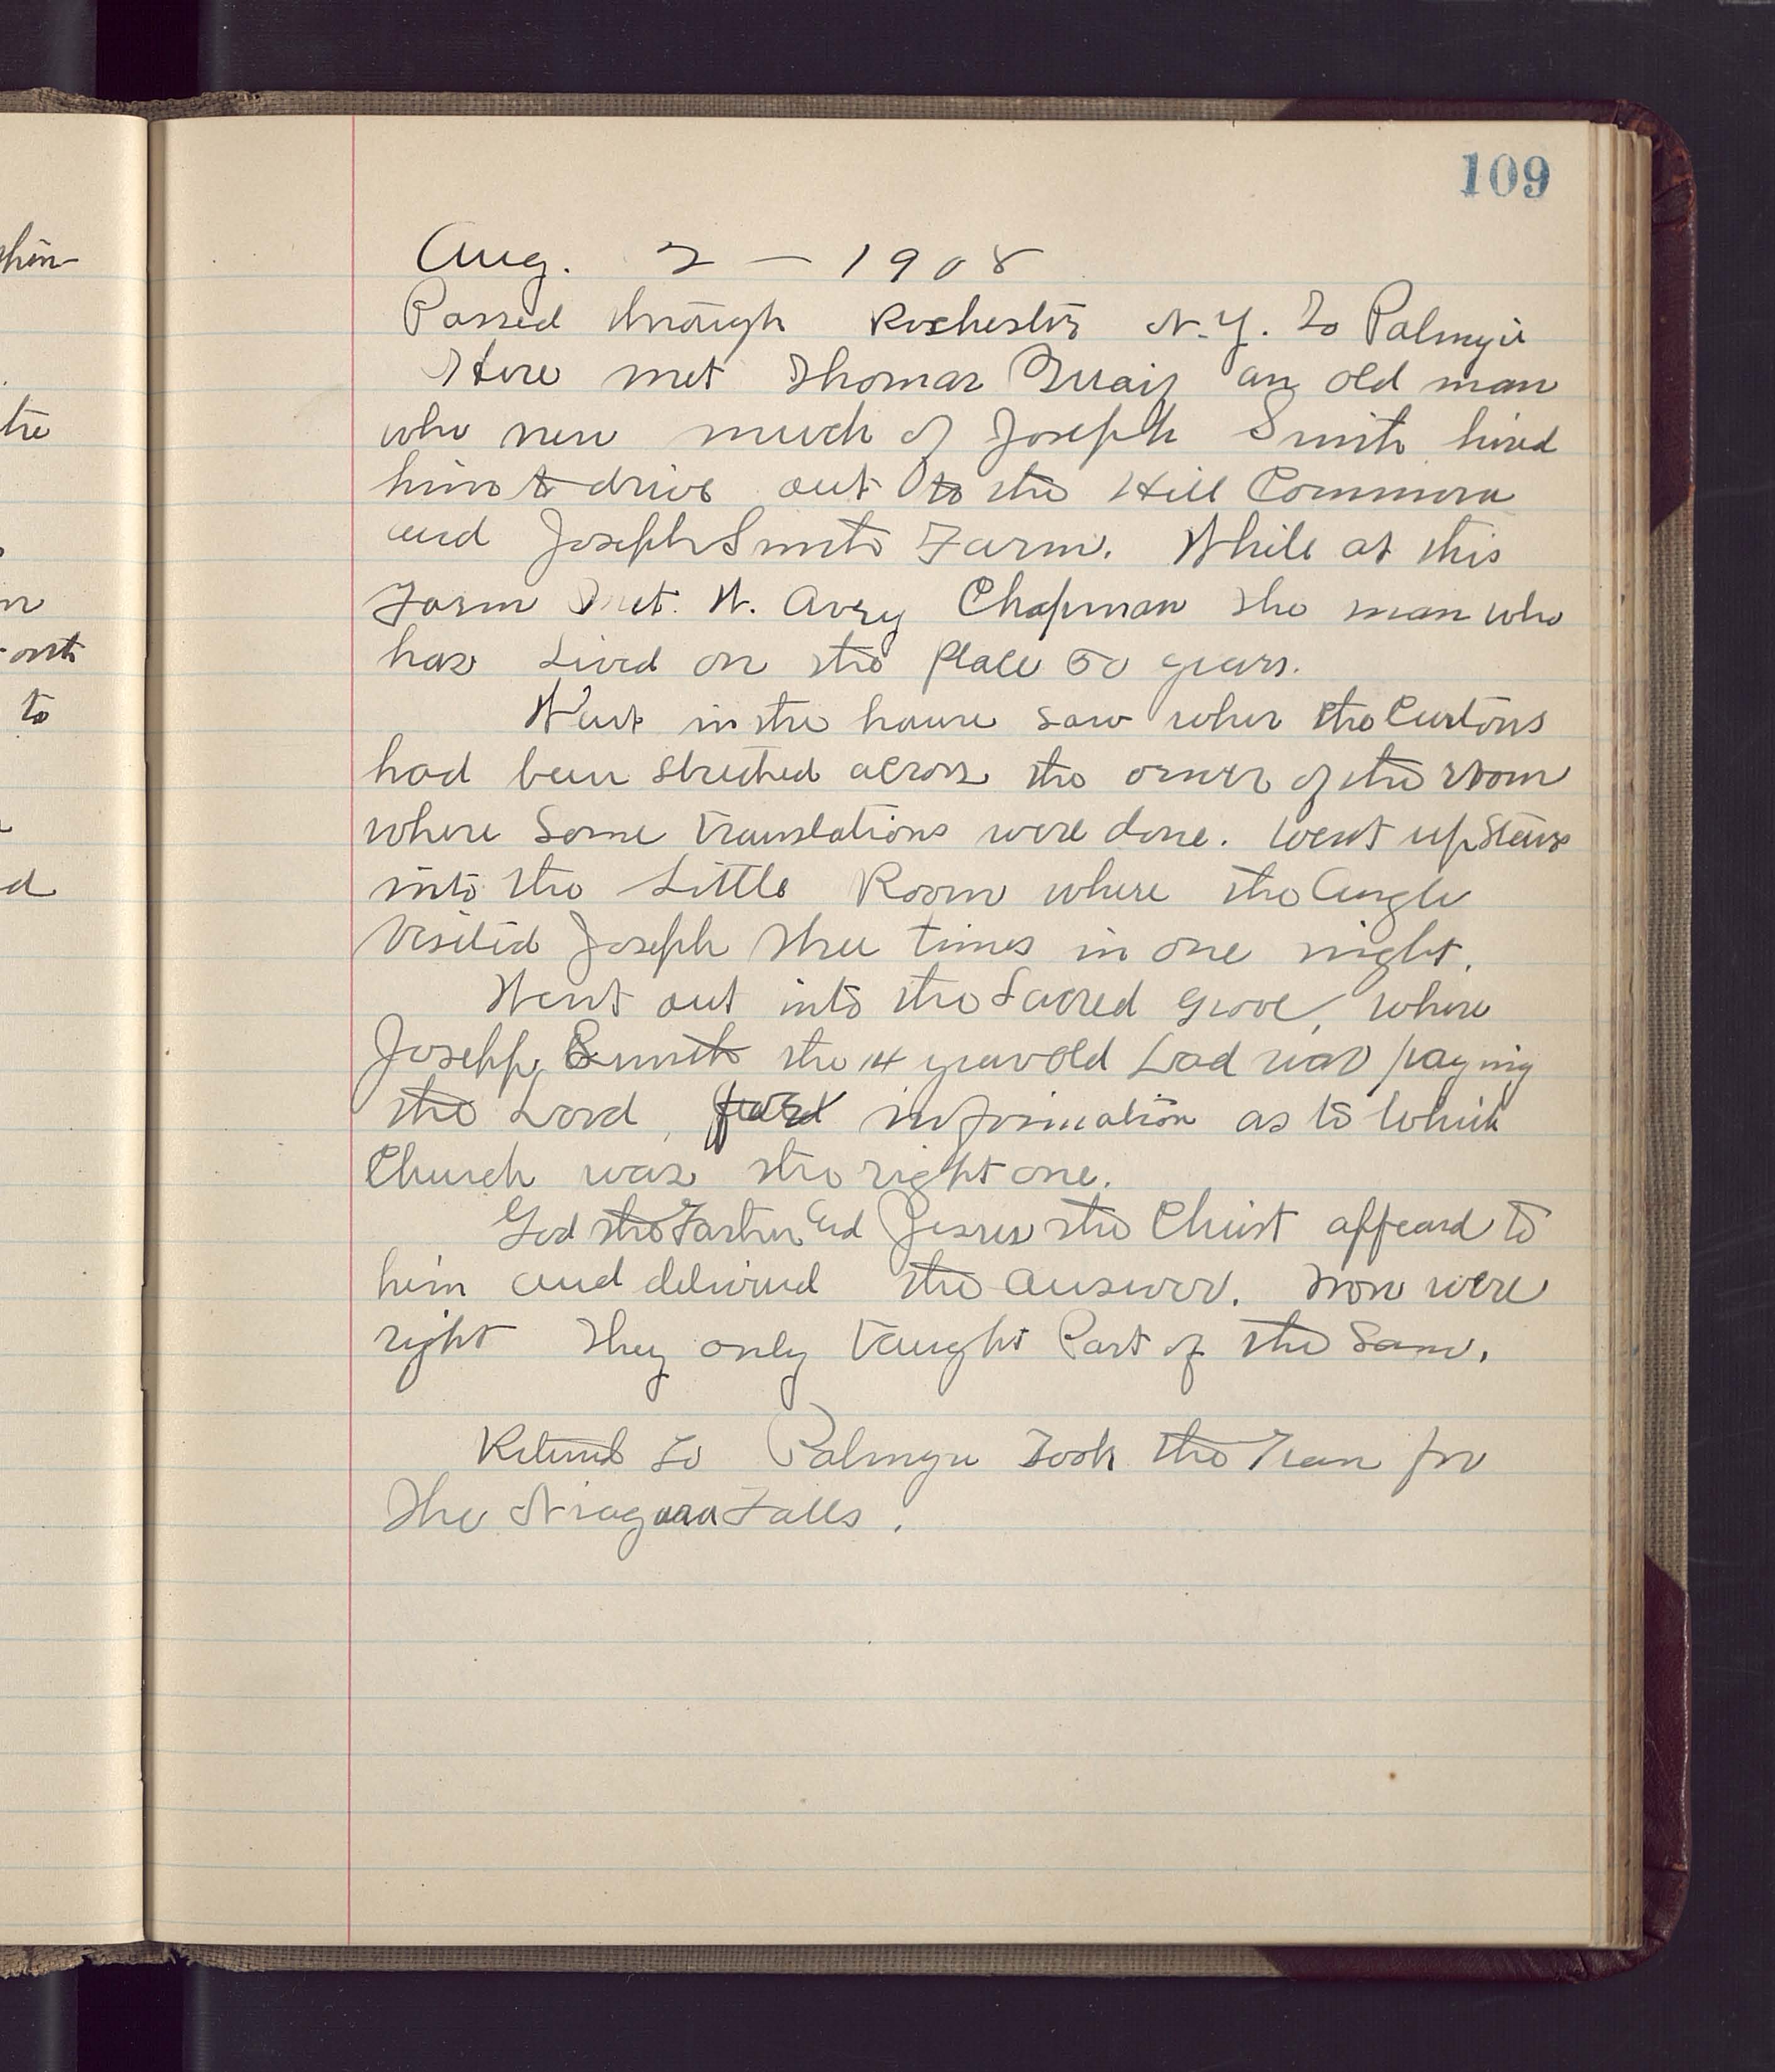 109
Aug. 2 — 1908
Passed through Rochester N.Y. To Palmyra
Here met Thomas an old man
who new much of Joseph Smith hired
him to drive out to the Hill Commora
and Joseph Smith Farm. While at this
Farm Met. W. Avery Chapman the man who
has Lived on the place 50 years.
Went in the house saw wher the Curtons
had been streched across the orner of the room
where Some translations were done. went up Stairs
into the Little Room where the Angle
Visited Joseph three times in one night.
Went out into the Sacred Grove, where
Joseph Smith the 14 year old Lad was praying
the Lord, for information as to which
Church was the right one.
God the Farther and Jesus the Christ appeard to
him and deliverd the answer. Non were
right They only taught Part of the Same.
Returnd to Palmyra Took the Tran for
The Niagara Falls.
hin-
tre
n
to
d